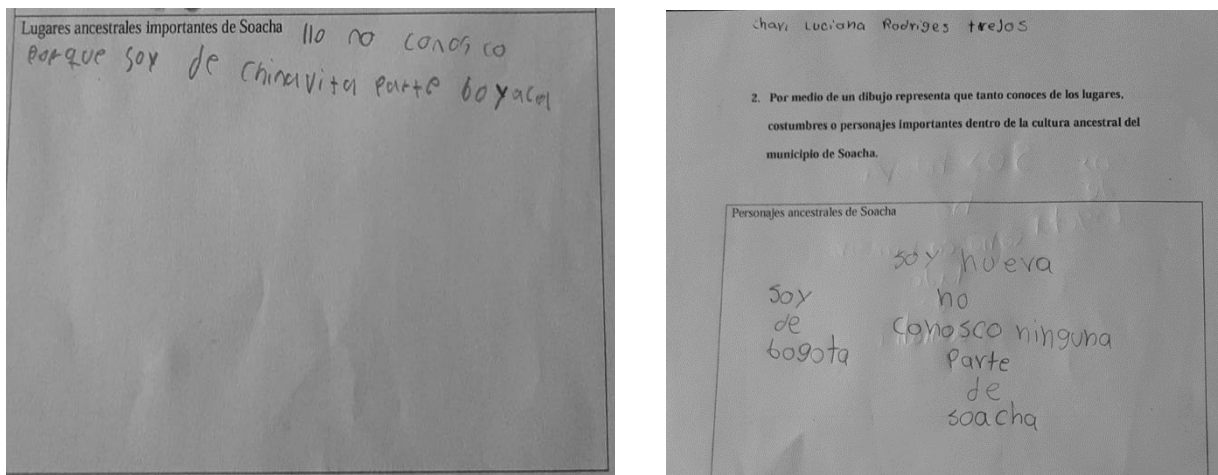 Lugares ancestrales importantes de Soacha llo no conosco
porque soy de chinavita parte boyaca
Shari Luciana Rodriges trejos
2. Por medio de un dibujo representa que tanto conoces de los lugares,
costumbres o personajes importantes dentro de la cultura ancestral del
municipio de Soacha.
Personajes ancestrales de Soacha
soy nueva
no
conosco ninguna
parte
de
soacha
soy
de
bogota